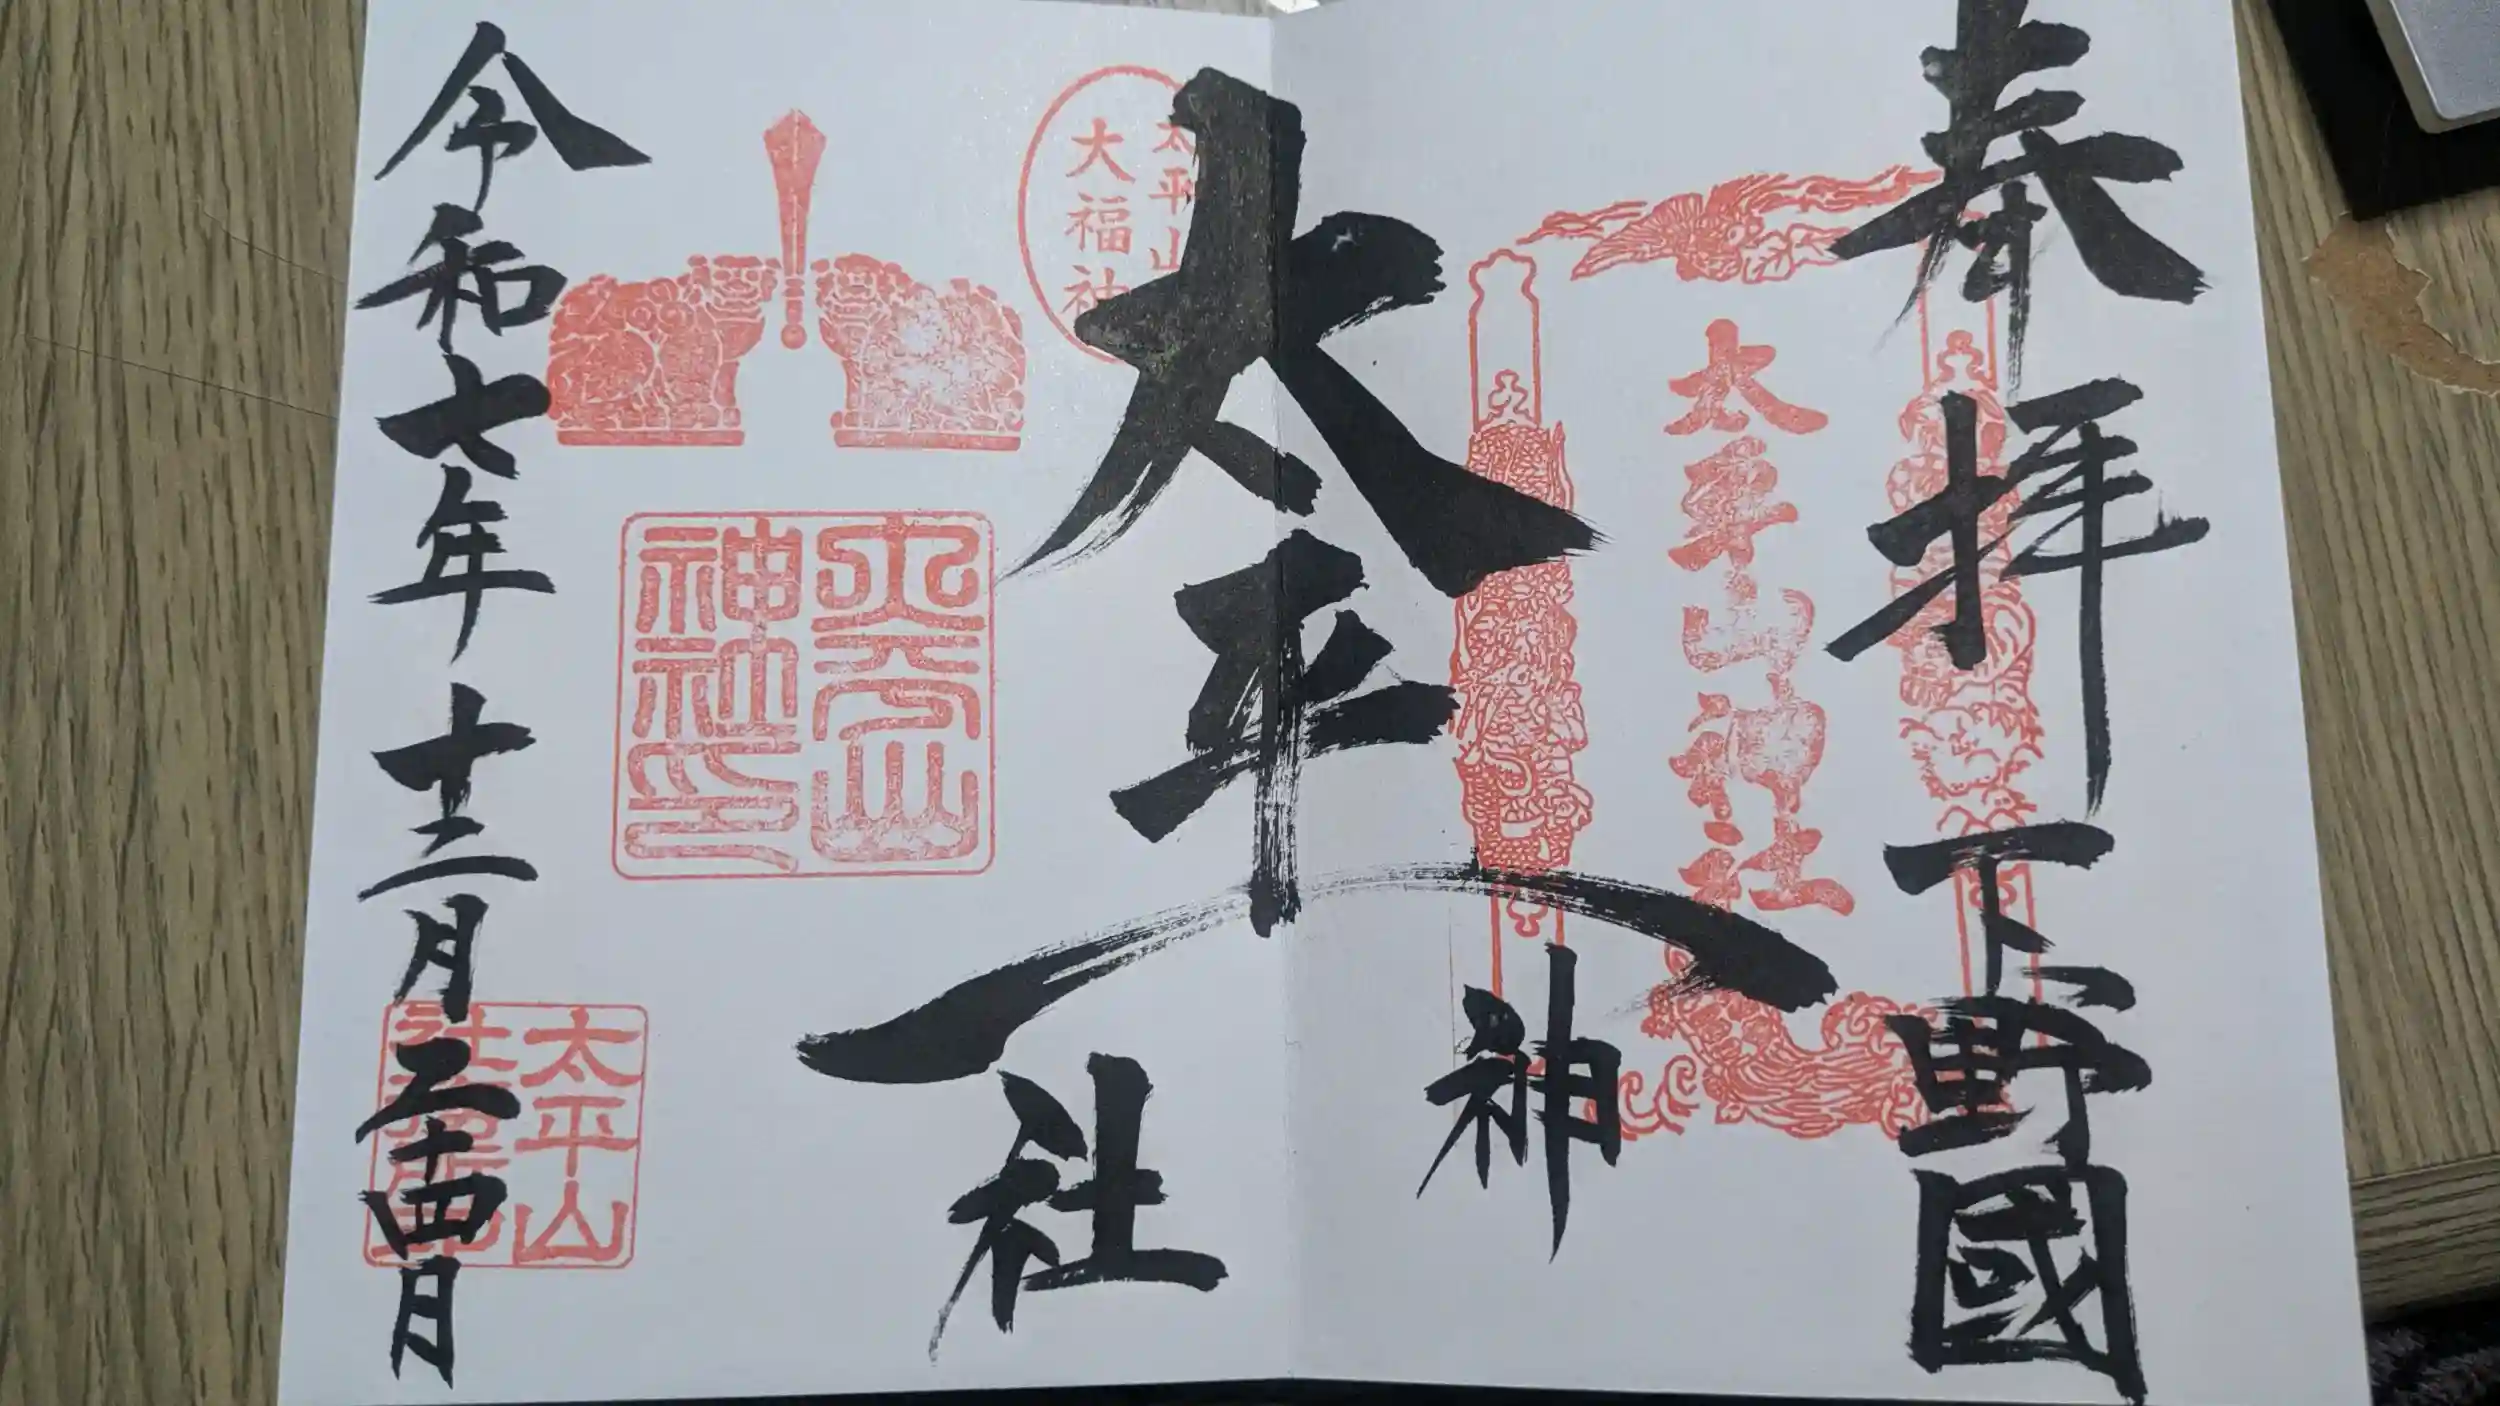 奉拝 下野國
太平山神社
太平山神社
太平山
大福神
太平山
神社印
令和七年十二月二十四日
太平山
社務所印